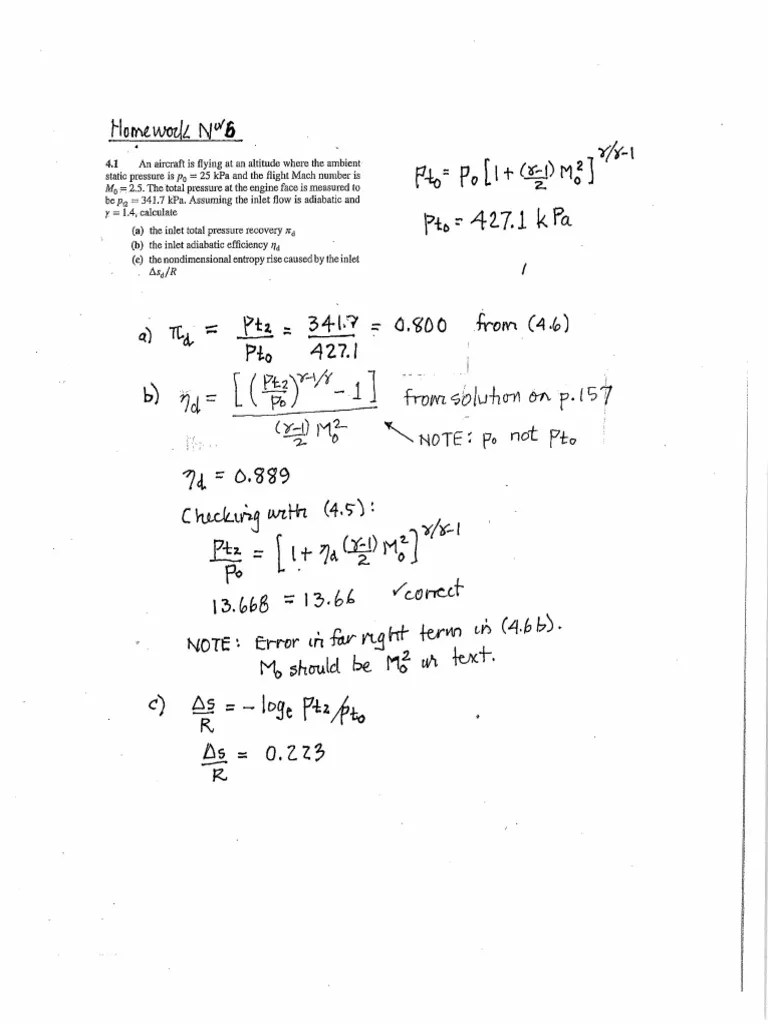 Homework Nº 6
4.1 An aircraft is flying at an altitude where the ambient
static pressure is p₀ = 25 kPa and the flight Mach number is
M₀ = 2.5. The total pressure at the engine face is measured to
be pt2 = 341.7 kPa. Assuming the inlet flow is adiabatic and
γ = 1.4, calculate
(a) the inlet total pressure recovery πd
(b) the inlet adiabatic efficiency ηd
(c) the nondimensional entropy rise caused by the inlet
Δsd/R
Pt₀ = P₀ [1 + (γ-1)/2 M₀²]^γ/γ-1
Pt₀ = 427.1 kPa
a) πd = Pt2/Pt₀ = 341.7/427.1 = 0.800 from (4.6)
b) ηd = [(Pt2/P₀)^γ-1/γ - 1] / (γ-1)/2 M₀² from solution on p.157
NOTE: P₀ not Pt₀
ηd = 0.889
Checking with (4.5):
Pt2/P₀ = [1 + ηd (γ-1)/2 M₀²]^γ/γ-1
13.668 = 13.66 ✓correct
NOTE: Error in far right term in (4.6b).
M₀ should be M₀² in text.
c) Δs/R = - logₑ Pt2/Pt₀
Δs/R = 0.223